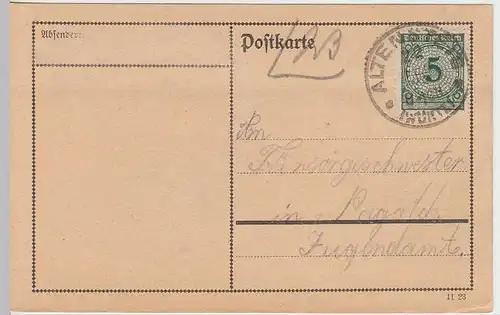 Absender:
Postkarte
Deutsches Reich
5
ALTEN
An
Fürsorgeschwester
in
Jugendamt.
11 23